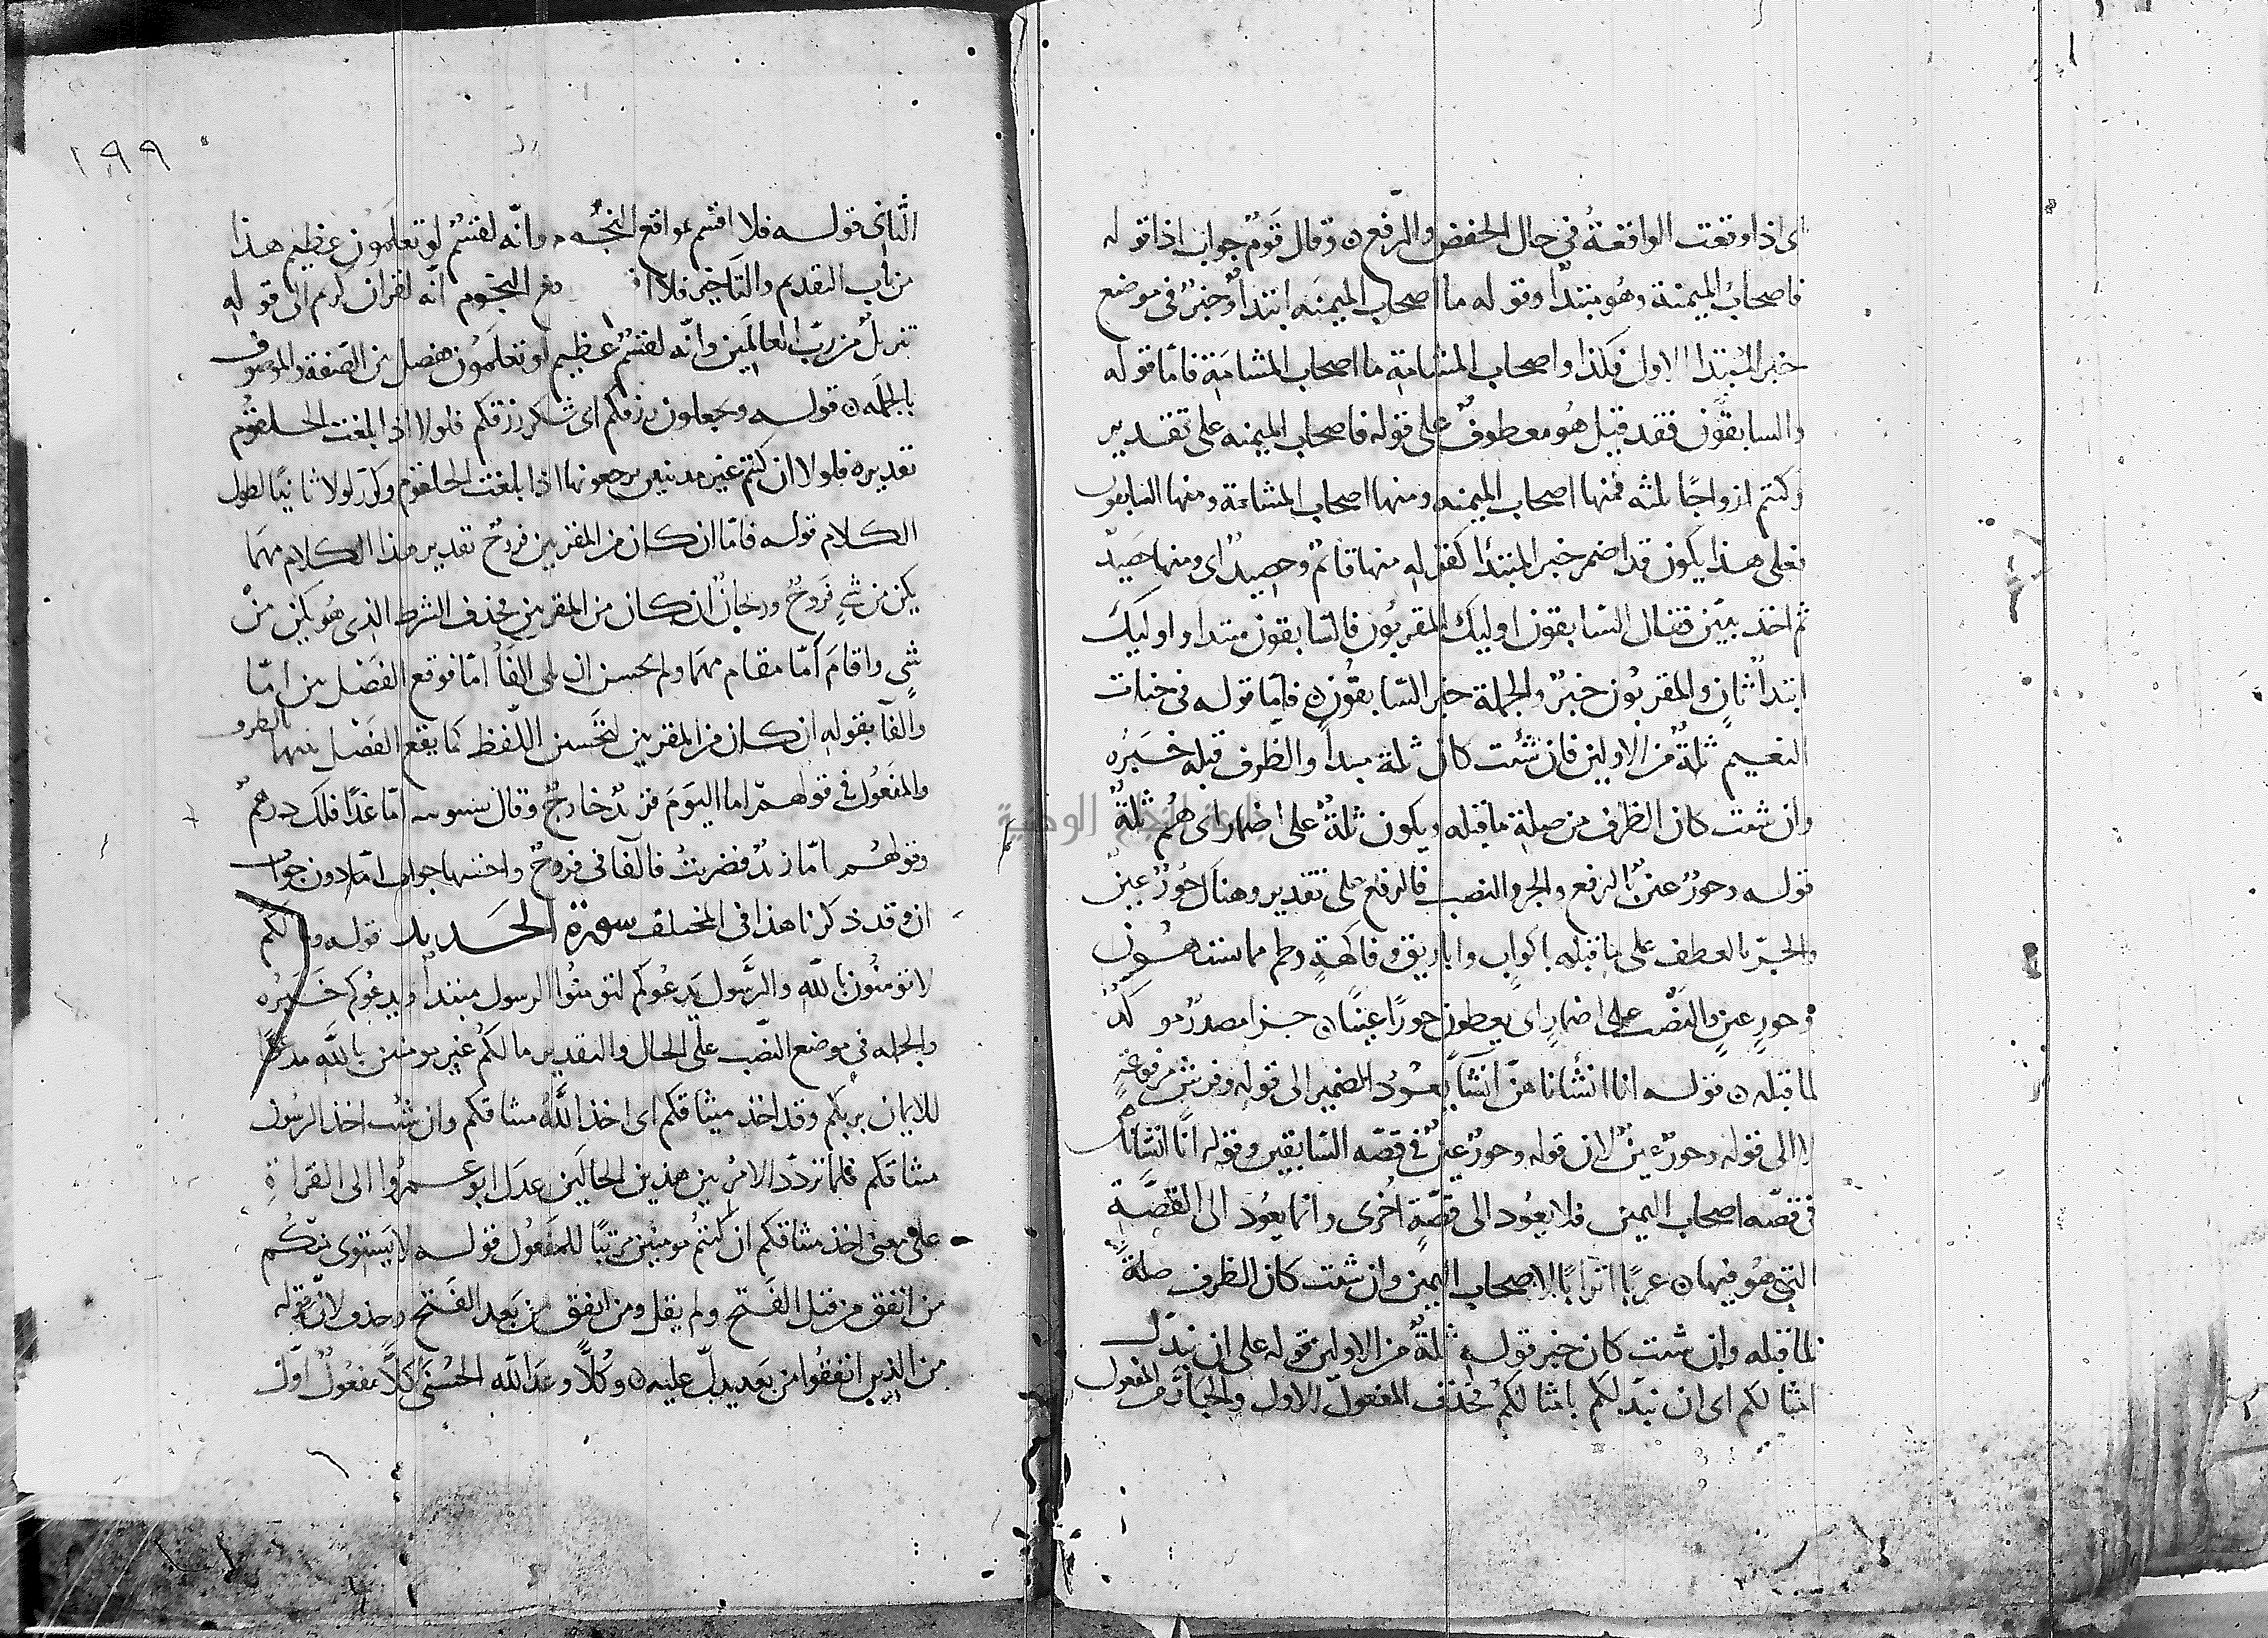 اى اذا وقعت الواقعةُ فى حال الخفض والرّفع ٥ وقال قَومٌ جواب اذا قوله
فاصحابُ الميمنة وهُو مبتدأ وقوله ما اصحاب الميمنه ابتدأٌ وخبرٌ فى موضع
خبر المبتدا الاول فكذا واصحاب المشامةِ ما اصحاب المشامَةِ فامّا قوله
والسابقُون فقد قيل هُو معطوفٌ على قوله فاصحاب الميمنه على تقدير
وكنتم ازواجًا ثلثه فمنها اصحاب الميمنه ومنها اصحاب المشامة ومنها السابقون
فعلى هذا يكون قد اضمر خبر المبتدأ كقولِهِ منها قائمٌ وحصيدٌ اى ومنها حَصِيدٌ
ثم اخذ يبيّن فقال السّابقون اوليك المقربُون فالسّابقون مبتدا واوليك
ابتدأٌ ثانٍ والمقربُون خبرٌ والجملة خبر السّابقُون ٥ فامّا قوله فى جنات
النعيم ثلةٌ من الاولين فان شئت كان ثلة مبتدأً والظرف قبله خَبَرُه
وان شئت كان الظرف من صلةِ ما قبله ويكون ثلةٌ على اضمار اى هُم ثلةٌ
قوله وحورٌ عينٌ بالرفع والجر والنصب فالرفع على تقدير وهناك حُورٌ عينٌ
والجرّ بالعطف على ما قبله باكوابٍ واباريق وفاكهةٍ ولحم مما يشتهون
وحورٍ عينٍ والنصْب على اضمارِ اى يعطون حورًا عينًا ٥ جزا مصدرٌ موكدٌ
لما قبله ٥ قوله انا انشاناهنّ انشآً يعُودُ الضمير الى قوله وفرشٍ مرفوعَةٍ
لا الى قوله وحورٌ عينٌ لان قوله وحورٌ عينٌ فى قصّه السّابقين وقوله انّا انشاناهن
فى قصّه اصحاب اليمين فلا يعُود الى قصّةٍ اخرى وانما يعُود الى القصَّةِ
التى هُو فيها ٥ عربًا اترابًا لاصحاب اليمين وان شئت كان الظرف صلةً
لما قبله وان شئت كان خبر قوله ثلةٌ من الاولين قوله على ان نبدّل
امثالكم اى ان نبدلكم بامثالكم فحذف المفعول الاول والجار من المفعول
١٩٩
الثّانى قوله فلا اقسم بمواقع النجُوم وانّه لقسَمٌ لو تعلمُون عظيم هذا
من باب التقديم والتّاخير فلا ا قع النجُوم انّه لقران كريم الى قوله
تنزيلٌ من ربّ العالمين وانّه لقسَمٌ عظيم لو تعلمُون ففصل بين الصّفة والموصوف
بالجملَه ٥ قوله وتجعلون رزقكم اى شكر رزقكم فلولا اذا بلغت الحلقُوم
تقديره فلولا ان كنتم غير مدينين ترجعونها اذا بلغت الحلقوم وكرّر لولا ثانيًا لطول
الكلام قوله فامّا ان كان من المقربين فروحٌ تقدير هذا الكلام مهمَا
يكن من شىءٍ فَروحٌ وريحانٌ ان كان من المقربين فحذف الشرط الذى هُو يكن منْ
شىٍ واقامَ امّا مقام مهما ولم يحسن ان يلى الفَأُ امّا فوقع الفصْل بين امّا
والفاَ بقولهِ ان كان من المقربين لتحَسين اللّفظ كما يقع الفصْل بينهما بالظرو
والمفعُول فى قولهمْ اما اليَومَ فزيدٌ خارجٌ وقال سيبويه امّا غدًا فلك درهمٌ
وقولهُم امّا زيدٌ فضربتُ فالفا فى فروحٌ واختها جواب امّا دون جواب
ان وقد ذكرنا هذا فى المختلف سورة الحديد قوله وما لكم
لا تومنُون باللّه والرّسول يَدعُوكم لتومنُوا الرسول مبتدأٌ ويدعُوكم خَبَرُه
والجمله فى موضع النصْب على الحال والتقدير ما لكم غير مومنين باللّه مدعوًا
للايمان بربكم وقد اخذ ميثاقكم اى اخذ اللَّهُ ميثاقكم وان شئت اخذ الرسُول
ميثاقكم فلما تردّد الامرُ بين هذين الحالَين عدَل ابو عمرو الى القراةِ
على معنى اخذ ميثاقكم ان كنتُم مومنين مرتبًا للمفعُول قوله لا يَستوى منكُم
من انفق من قبل الفَتح ولم يقل ومن انفق من بَعد الفَتح وحذف لانّ قوله
من الذين انفقُوا من بَعد يدلّ عليه ٥ وكُلًّا وعَد اللّه الحُسْنى كلًّا مفعُولٌ اوّل